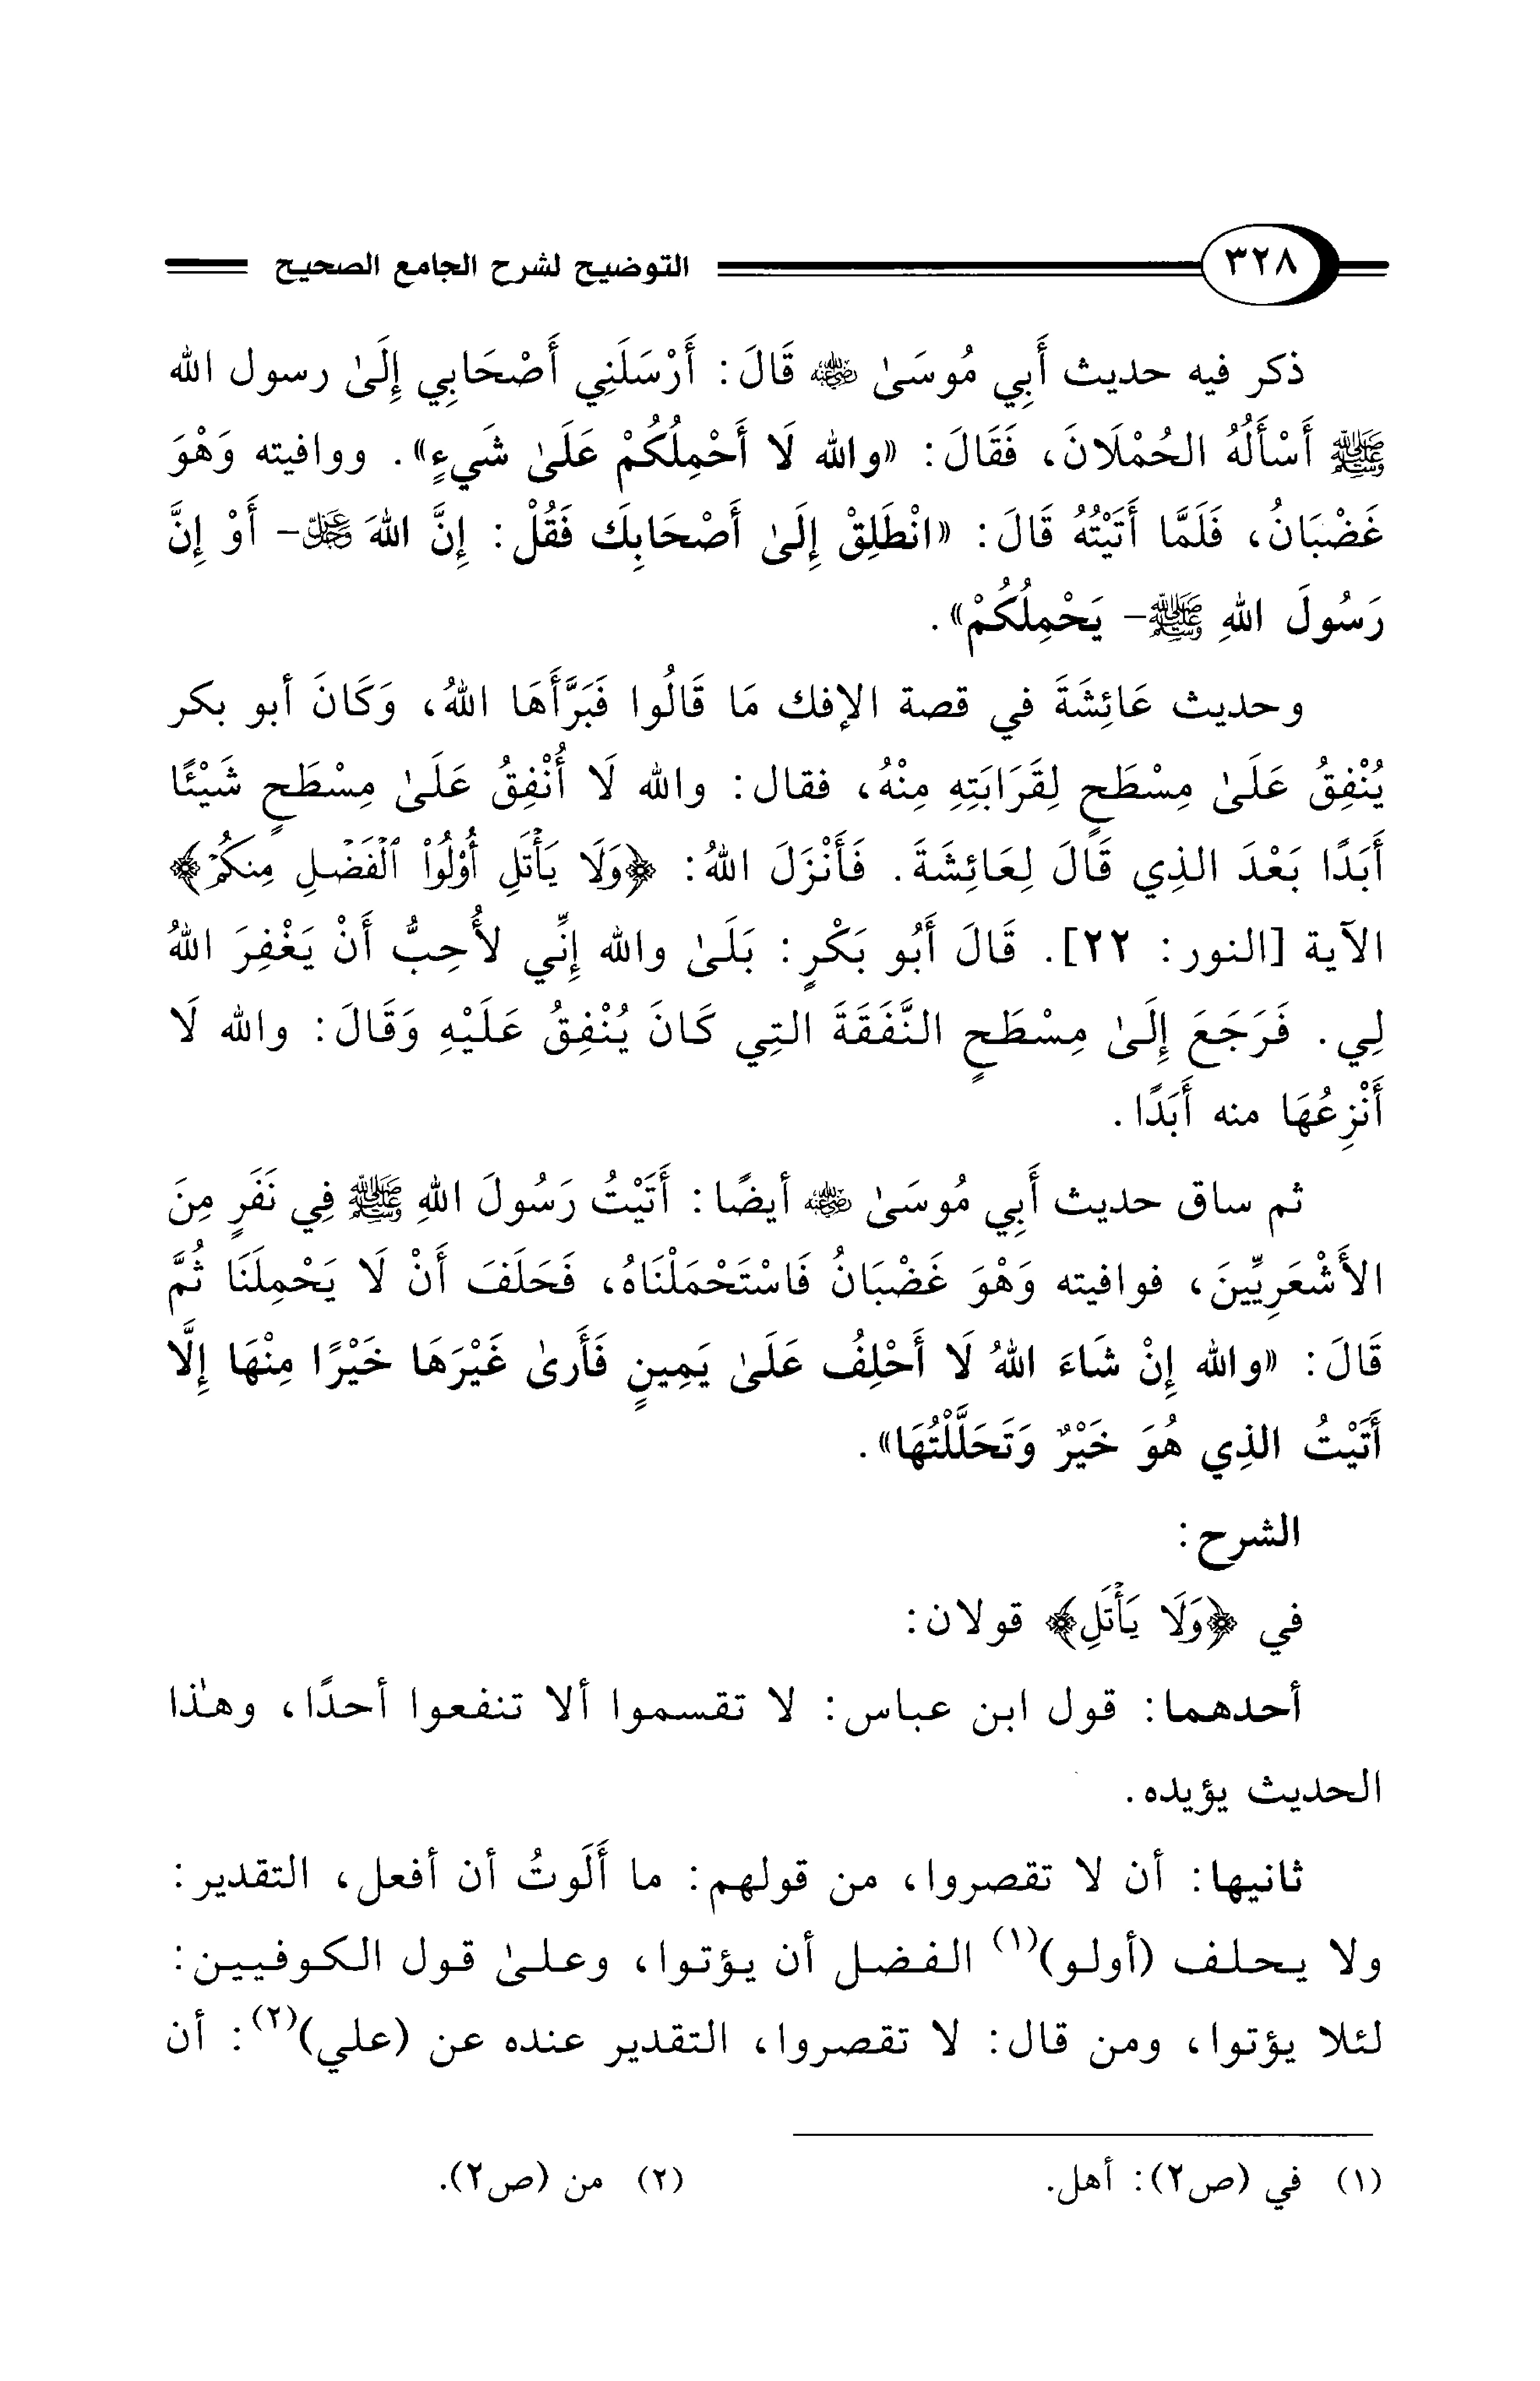 ٣٢٨ التوضيح لشرح الجامع الصحيح
ذكر فيه حديث أَبِي مُوسَىٰ ﵁ قَالَ: أَرْسَلَنِي أَصْحَابِي إِلَىٰ رسول الله
ﷺ أَسْأَلُهُ الحُمْلَانَ، فَقَالَ: «والله لَا أَحْمِلُكُمْ عَلَىٰ شَيءٍ». ووافيته وَهْوَ
غَضْبَانُ، فَلَمَّا أَتَيْتُهُ قَالَ: «انْطَلِقْ إِلَىٰ أَصْحَابِكَ فَقُلْ: إِنَّ اللهَ ﷿- أَوْ إِنَّ
رَسُولَ اللهِ ﷺ- يَحْمِلُكُمْ».
وحديث عَائِشَةَ في قصة الإفك مَا قَالُوا فَبَرَّأَهَا اللهُ، وَكَانَ أبو بكر
يُنْفِقُ عَلَىٰ مِسْطَحٍ لِقَرَابَتِهِ مِنْهُ، فقال: والله لَا أُنْفِقُ عَلَىٰ مِسْطَحٍ شَيْئًا
أَبَدًا بَعْدَ الذِي قَالَ لِعَائِشَةَ. فَأَنْزَلَ اللهُ: ﴿وَلَا يَأْتَلِ أُوْلُوا۟ ٱلْفَضْلِ مِنكُمْ﴾
الآية [النور: ٢٢]. قَالَ أَبُو بَكْرٍ: بَلَىٰ والله إِنِّي لأُحِبُّ أَنْ يَغْفِرَ اللهُ
لِي. فَرَجَعَ إِلَىٰ مِسْطَحٍ النَّفَقَةَ التِي كَانَ يُنْفِقُ عَلَيْهِ وَقَالَ: والله لَا
أَنْزِعُهَا منه أَبَدًا.
ثم ساق حديث أَبِي مُوسَىٰ ﵁ أيضًا: أَتَيْتُ رَسُولَ اللهِ ﷺ فِي نَفَرٍ مِنَ
الأَشْعَرِيِّينَ، فوافيته وَهْوَ غَضْبَانُ فَاسْتَحْمَلْنَاهُ، فَحَلَفَ أَنْ لَا يَحْمِلَنَا ثُمَّ
قَالَ: «والله إِنْ شَاءَ اللهُ لَا أَحْلِفُ عَلَىٰ يَمِينٍ فَأَرىٰ غَيْرَهَا خَيْرًا مِنْهَا إِلَّا
أَتَيْتُ الذِي هُوَ خَيْرٌ وَتَحَلَّلْتُهَا».
الشرح:
في ﴿وَلَا يَأْتَلِ﴾ قولان:
أحدهما: قول ابن عباس: لا تقسموا ألا تنفعوا أحدًا، وهٰذا
الحديث يؤيده.
ثانيها: أن لا تقصروا، من قولهم: ما أَلَوتُ أن أفعل، التقدير:
ولا يحلف (أولو)(١) الفضل أن يؤتوا، وعلىٰ قول الكوفيين:
لئلا يؤتوا، ومن قال: لا تقصروا، التقدير عنده عن (علي)(٢): أن
(١) في (ص٢): أهل. (٢) من (ص٢).